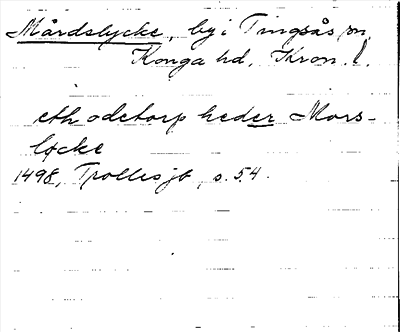 Mårdslycke, by i Tingsås sn,
Konga hd, Kron. l.
eth odetorp heder Mors-
løcke
1498, Trolles jb, s. 54.